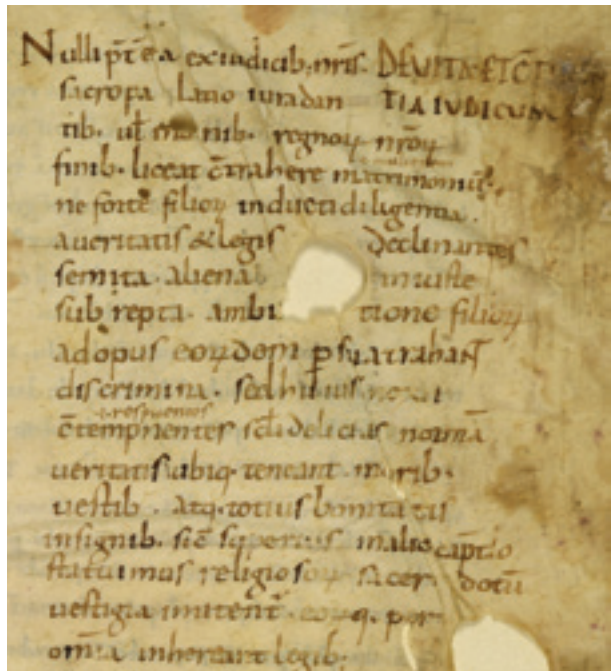 Nulli pt̄ea exiudicib; nr̄is DE VITA ET
sacro pa latio iuradan TIA IUDICUM
tib. ul̄ regnoꝝ nr̄oꝝ
finib. liceat c̄trahere matrimoniū.
ne forte filioꝝ inducti diligentia.
a ueritatis & legis declinantes
semita. aliena iniuste
sub repta. ambi tione filioꝝ
ad opus eoꝝ dom ꝑ sua trahant
discrimina. sed huius
respuentes
c̄tempnentes scl̄i delicias normā
ueritatis ubiq. teneant. morib.
uestib. atq. totius bonitatis
insignib. sic̄ superius in alio capt̄io
statuimus religiosoꝝ sacer dotū
uestigia imitent̄. eoꝝq. per
om̄ia inhereant legib;